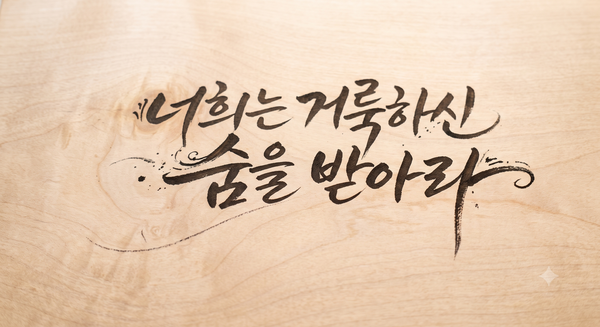 너희는 거룩하신
숨을 받아라